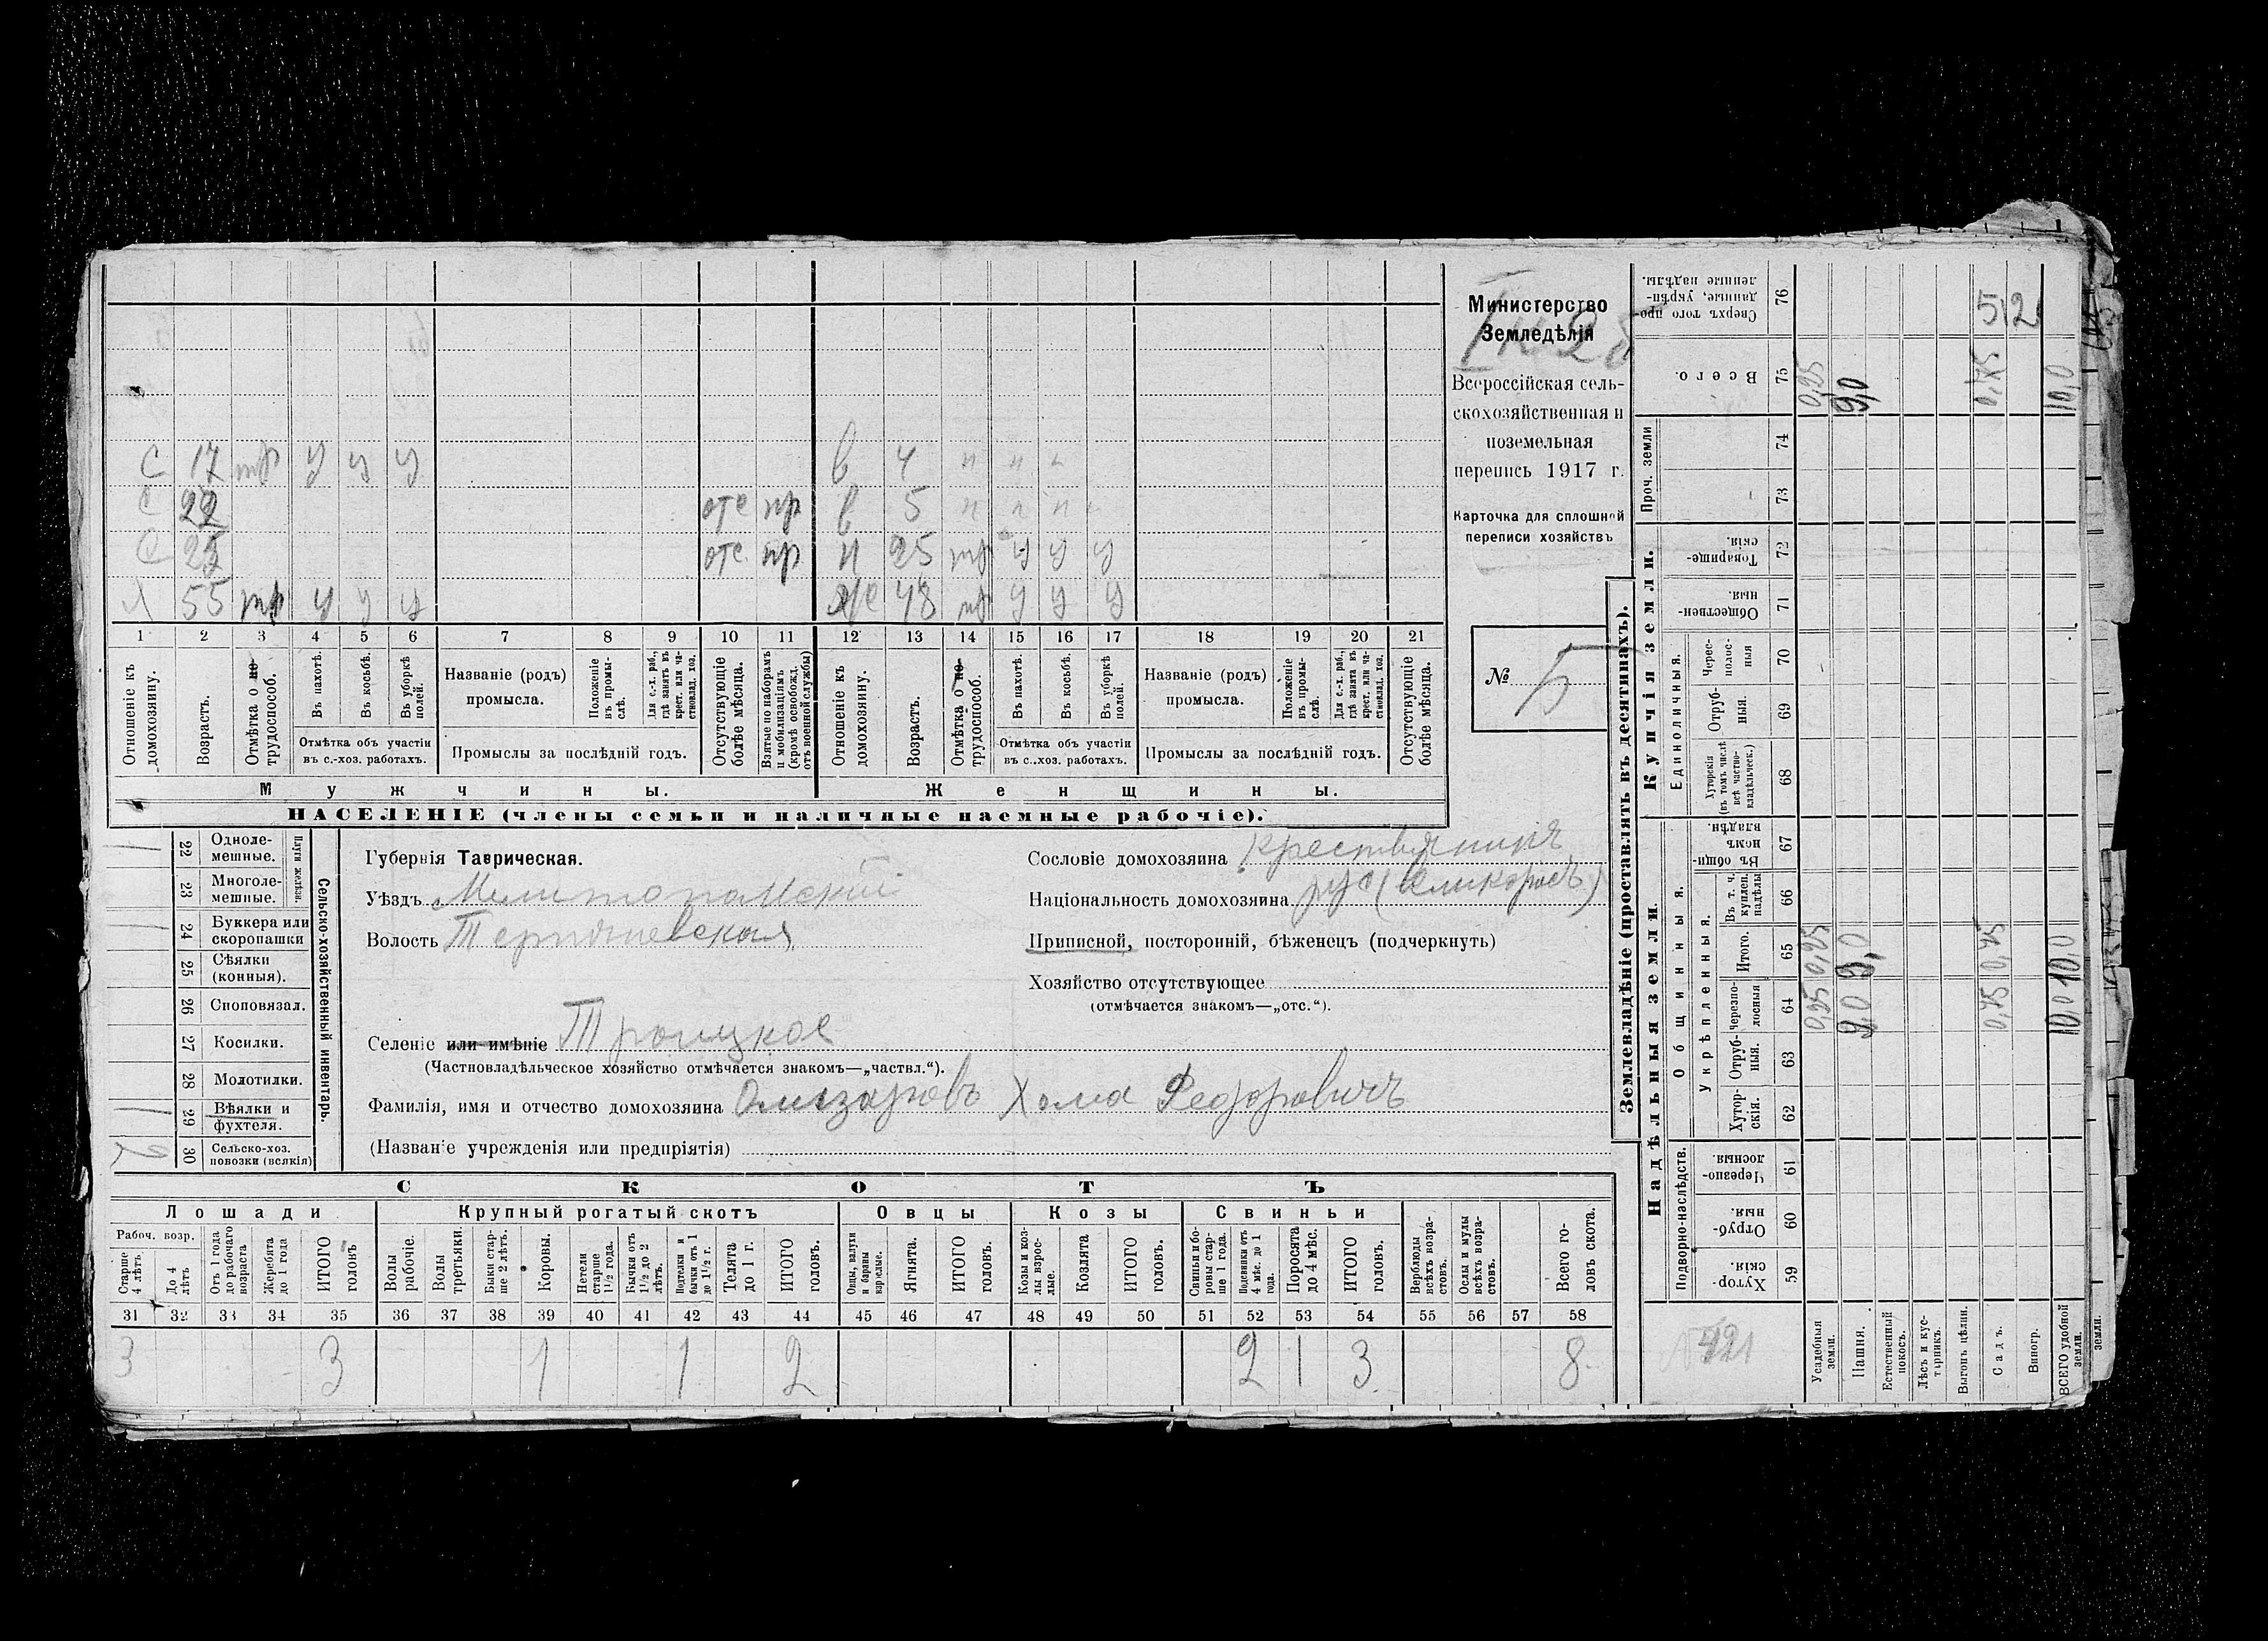 С 17 тр у у у в 4 н н н
С 22 отс пр в 5 н н н
С 25 отс. пр н 25 тр у у у
Х 55 тр у у у же 48 тр у у у
1 2 3 4 5 6 7 8 9 10 11 12 13 14 15 16 17 18 19 20 21
Отношеніе къ домохозяину.
Возрастъ.
Отмѣтка о не-трудоспособ.
Въ пахотѣ.
Въ косьбѣ.
Въ уборкѣ полей.
Отмѣтка объ участіи въ с.-хоз. работахъ.
Названіе (родъ) промысла.
Положеніе въ промыслѣ.
Для с.-х. раб., гдѣ занятъ въ крест. или частновлад. хоз.
Промыслы за послѣдній годъ.
Отсутствующіе болѣе мѣсяца.
Взятые по наборамъ и мобилизаціямъ (кромѣ освобожд. отъ военной службы)
Отношеніе къ домохозяину.
Возрастъ.
Отмѣтка о не-трудоспособ.
Въ пахотѣ.
Въ косьбѣ.
Въ уборкѣ полей.
Отмѣтка объ участіи въ с..хоз. работахъ.
Названіе (родъ) промысла.
Положеніе въ промыслѣ.
Для с.-х. раб., гдѣ занята въ крест. или частновлад. хоз.
Промыслы за послѣдній годъ.
Отсутствующіе болѣе мѣсяца.
Мужчины. Женщины.
НАСЕЛЕНІЕ (члены семьи и наличные наемные рабочіе).
Министерство
Земледѣлія
Всероссійская сель-
скохозяйственная и
поземельная
перепись 1917 г.
Карточка для сплошной
переписи хозяйствъ
№ 5
Сельско-хозяйственный инвентарь.
Плуги желѣзн.
22 Однолемешные.
23 Многолемешные.
24 Буккера или скоропашки
25 Сѣялки (конныя).
26 Споповязал.
27 Косилки.
28 Молотилки.
29 Вѣялки и фухтеля.
30 Сельско-хоз. повозки (всякія)
Губернія Таврическая.
Уѣздъ Мелитопольскій
Волость
Селеніе или имѣніе Троицкое
(Частновладѣльческое хозяйство отмѣчается знакомъ—„частвл.“).
Фамилія, имя и отчество домохозяина Олизаровъ Хома Федоровичъ
(Названіе учрежденія или предпріятія)
Сословіе домохозяина Крестьянинъ
Національность домохозяина рус (великороссъ)
Приписной, посторонній, бѣженецъ (подчеркнуть)
Хозяйство отсутствующее
(отмѣчается знакомъ—„отс.“).
СКОТЪ
Лошади Крупный рогатый скотъ Овцы Козы Свиньи
Рабоч. возр.
Старше 4 лѣтъ
До 4 лѣтъ
Отъ 1 года до рабочаго возраста
Жеребята до 1 года
ИТОГО головъ
Волы рабочіе.
Волы третьяки.
Быки старше 2 лѣтъ.
Коровы.
Нетели старше 1 1/2 года.
Бычки отъ 1 1/2 до 2 лѣтъ.
Подтелки и бычки отъ 1 до 1 1/2 г.
Телята до 1 г.
ИТОГО головъ.
Овцы, валухи и бараны взрослые.
Ягнята.
ИТОГО головъ.
Козы и козлы взрослые.
Козлята
ИТОГО головъ.
Свиньи и боровы старше 1 года.
Подсвинки отъ 4 мѣс. до 1 года.
Поросята до 4 мѣс.
ИТОГО головъ.
Верблюды всѣхъ возрастовъ.
Ослы и мулы всѣхъ возрастовъ.
Всего головъ скота.
31 32 33 34 35 36 37 38 39 40 41 42 43 44 45 46 47 48 49 50 51 52 53 54 55 56 57 58
3 3 1 1 2 2 1 3 8
Землевладѣніе (проставлять въ десятинахъ).
Надѣльныя земли.
Купчія земли.
Проч. земли
Подворно-наслѣдств.
Общинныя.
Укрѣпленныя.
Единоличныя.
59 Хуторскія.
60 Отрубныя.
61 Черезполосныя.
62 Хуторскія.
63 Отрубныя.
64 Черезполосныя
65 Итого.
66 Въ т. ч. куплен. надѣлы
67 Въ общин номъ владѣн.
68 Хуторскія (въ томъ числѣ всѣ частновладѣльческ.)
69 Отрубныя.
70 Черезполосныя
71 Общественныя.
72 Товарищескія.
73
74
75 Всего.
76 Сверхъ того проданные, укрѣпленные надѣлы.
Усадебныя земли. 0,25 0,25 0,25
Пашня. 9,0 9,0 9,0
Естественный покосъ.
Лѣсъ и кустарникъ.
Выгонъ цѣлин.
Садъ. 0,75 0,75 0,75
Виногр.
ВСЕГО удобной земли. 10,0 10,0 10,0
земли.